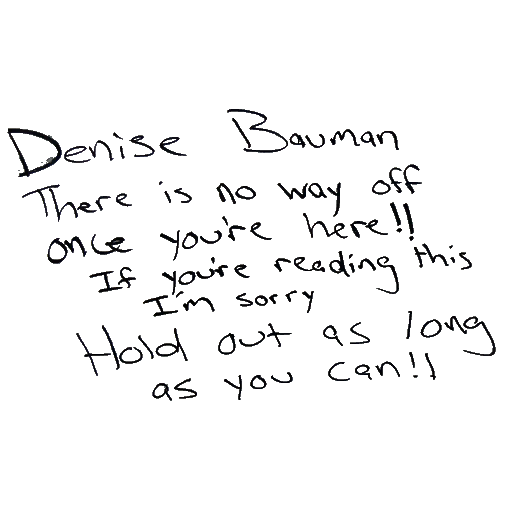 Denise Bauman
There is no way off
once you're here!!
If you're reading this
I'm sorry
Hold out as long
as you can!!